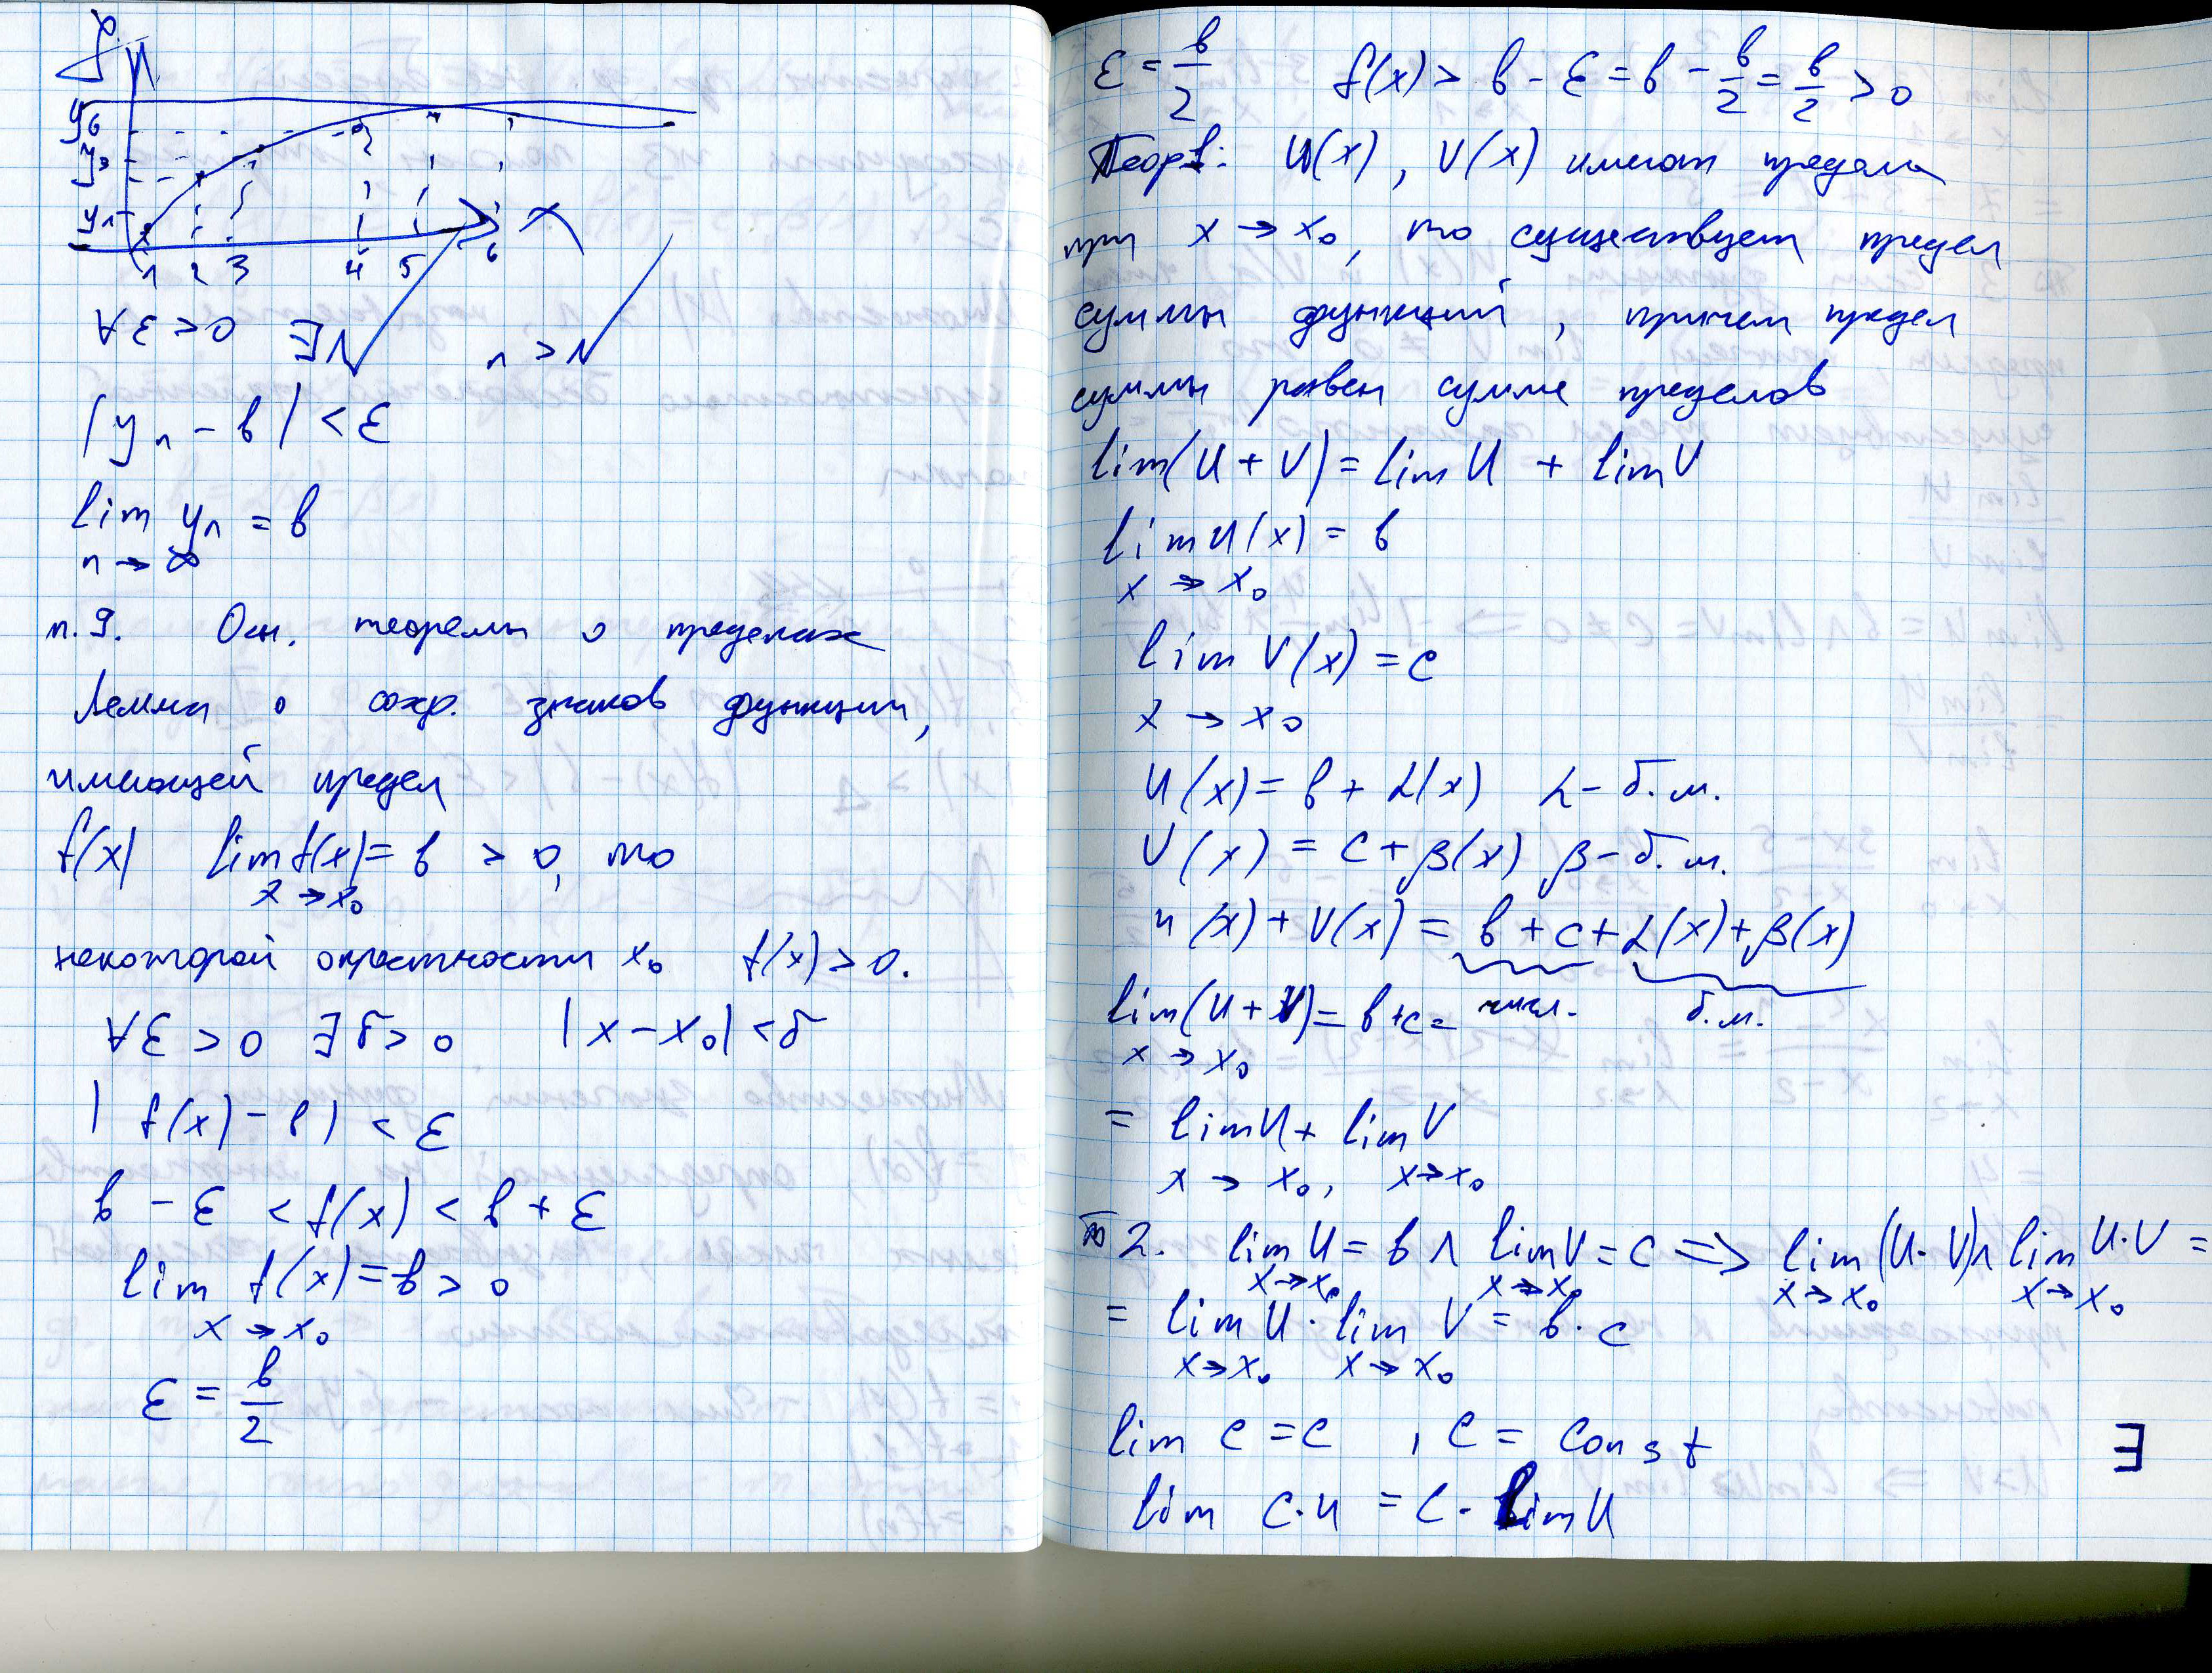 y
y6
y3
y1
x
1 2 3 4 5 6
∀ε>0 ∃N n>N
|yn - b| < ε
lim yn = b
n→∞
п.9. Осн. теоремы о пределах
Лемма о сохр. знаков функции,
имеющей предел
f(x) lim f(x) = b > 0, то
x→x0
некоторой окрестности x0 f(x)>0.
∀ε>0 ∃δ>0 |x-x0|<δ
|f(x)-b|<ε
b-ε<f(x)<b+ε
lim f(x)=b>0
x→x0
ε = b/2
ε = b/2 f(x) > b - ε = b - b/2 = b/2 > 0
Теор1: U(x), V(x) имеют пределы
при x→x0, то существует предел
суммы функций, причем предел
суммы равен сумме пределов
lim(U+V)=lim U + lim V
lim U(x) = b
x→x0
lim V(x) = c
x→x0
U(x) = b + α(x) α - б.м.
V(x) = c + β(x) β - б.м.
u(x)+V(x) = b+c+α(x)+β(x)
lim(U+V)=b+c= числ. б.м.
x→x0
= lim U + lim V
x→x0, x→x0
Т2. lim U = b ∧ lim V = c => lim (U·V) ∧ lim U·V =
x→x0 x→x0 x→x0 x→x0
= lim U · lim V = b·c
x→x0 x→x0
lim c = c , c = const
∃
lim c·u = c·lim U